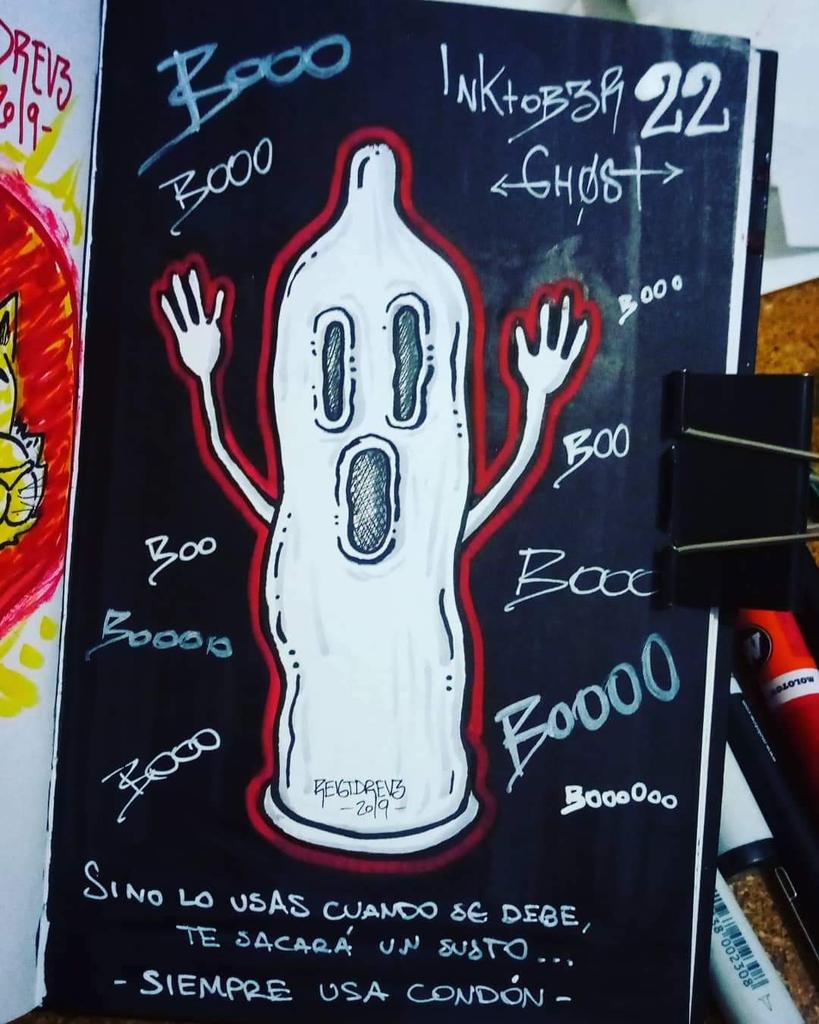 DREV3
2019-
Booo
INKtoB3R 22
Booo
GHØSt
Booo
Boo
Boo
Booo
Booooo
Boooo
Booo
REVSTDREV3
-2019-
Boooooo
MOLOTOW
SINO LO USAS CUANDO SE DEBE,
TE SACARÁ UN SUSTO...
- SIEMPRE USA CONDÓN -
002308